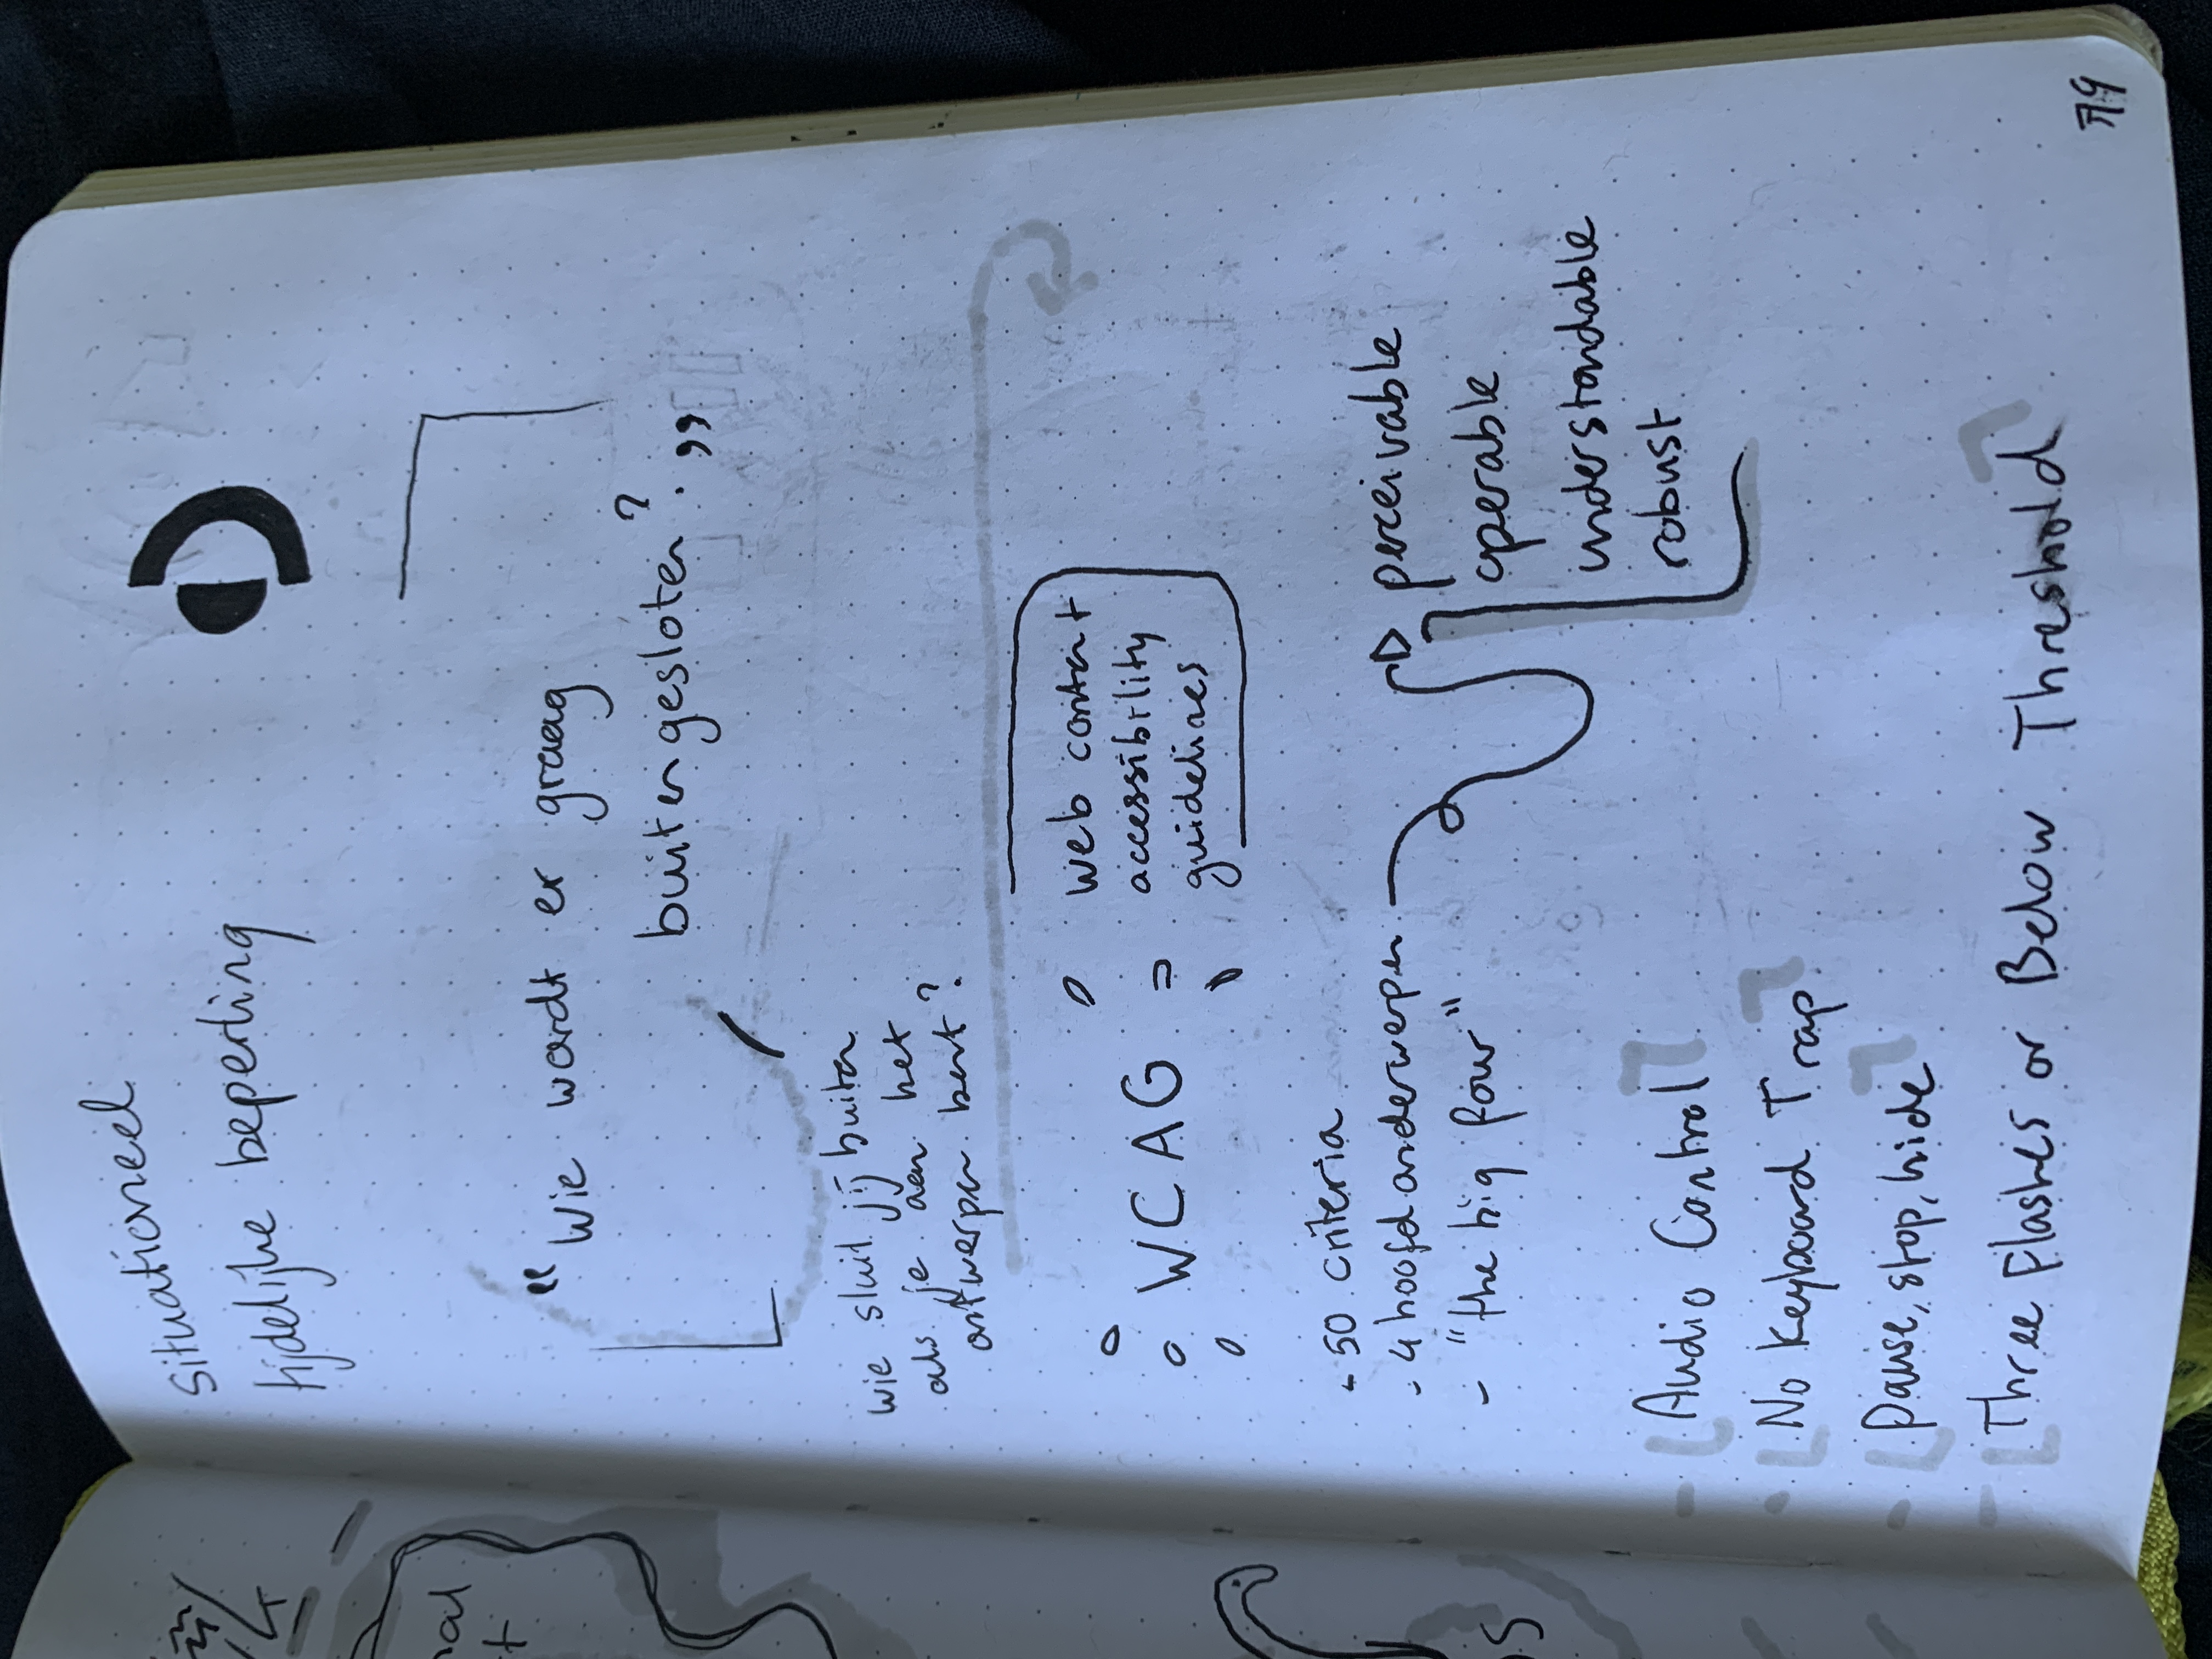 situationeel
tijdelijke beperking
“Wie wordt er graag
buitengesloten?„
wie sluit jij buiten
als je aan het
ontwerpen bent?
WCAG =
web content
accessibility
guidelines
- 50 criteria
- 4 hoofdonderwerpen
- "the big four"
perceivable
operable
understandable
robust
Audio Control
No Keyboard Trap
Pause, stop, hide
Three Flashes or Below Threshold
79